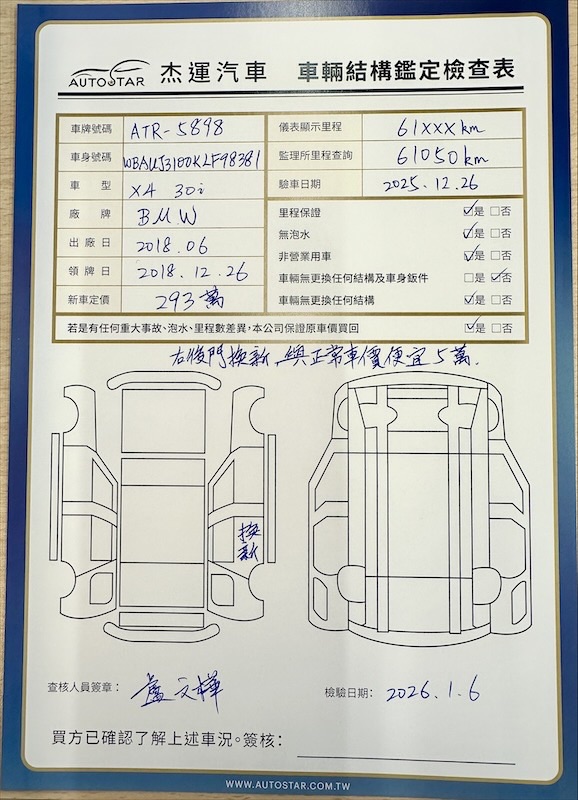 AUTOSTAR 杰運汽車 車輛結構鑑定檢查表
車牌號碼 ATR-5898
車身號碼 WBAUJ3100KLF98381
車型 X4 30i
廠牌 BMW
出廠日 2018.06
領牌日 2018.12.26
新車定價 293萬
儀表顯示里程 61xxx km
監理所里程查詢 61050 km
驗車日期 2025.12.26
里程保證 ☑是 □否
無泡水 ☑是 □否
非營業用車 ☑是 □否
車輛無更換任何結構及車身鈑件 □是 ☑否
車輛無更換任何結構 ☑是 □否
若是有任何重大事故、泡水、里程數差異,本公司保證原車價買回 ☑是 □否
右後門換新,與正常車價便宜5萬.
換新
查核人員簽章: 盧文樺
檢驗日期: 2026.1.6
買方已確認了解上述車況。簽核:
WWW.AUTOSTAR.COM.TW